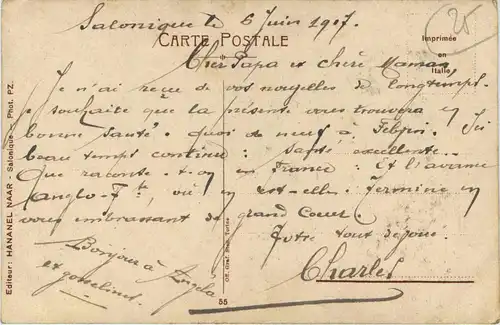 Salonique le 6 Juin 1917.
CARTE POSTALE
Imprimée
en
Italie
25
Cher Papa et chère Maman,
Je n'ai reçu de vos nouvelles de longtemps.
Je souhaite que la présente vous trouvera en
bonne santé. Quoi de neuf à
beau temps continue; santé excellente.
Que raconte-t-on en France: Et l'
anglo-F, où en est-elle. Termine en
vous embrassant de grand Coeur.
Votre tout dejoue.
Charles
Bonjour à Angela
et
Editeur: HANANEL NAAR - Salonique - Phot. PZ.
55